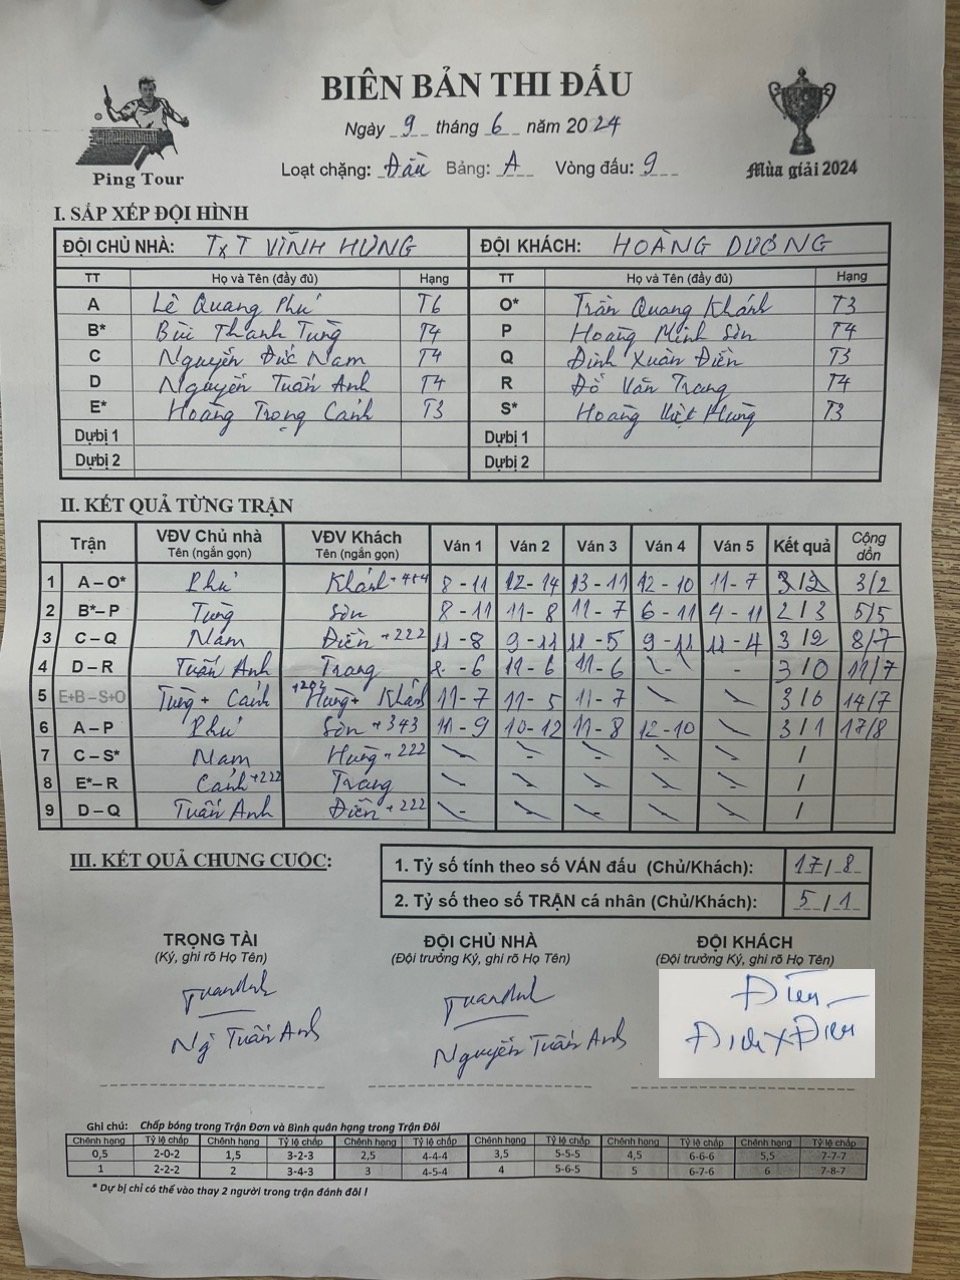 BIÊN BẢN THI ĐẤU
Ngày 9 tháng 6 năm 2024
Loạt chặng: Đầu Bảng: A Vòng đấu: 9
Ping Tour
Mùa giải 2024
I. SẮP XẾP ĐỘI HÌNH
ĐỘI CHỦ NHÀ: TxT VĨNH HƯNG ĐỘI KHÁCH: HOÀNG DƯƠNG
TT Họ và Tên (đầy đủ) Hạng TT Họ và Tên (đầy đủ) Hạng
A Lê Quang Phú T6 O* Trần Quang Khánh T3
B* Bùi Thanh Tùng T4 P Hoàng Minh Sơn T4
C Nguyễn Đức Nam T4 Q Đinh Xuân Điền T3
D Nguyễn Tuấn Anh T4 R Đỗ Văn Trang T4
E* Hoàng Trọng Cảnh T3 S* Hoàng Việt Hùng T3
Dựbị 1 Dựbị 1
Dựbị 2 Dựbị 2
II. KẾT QUẢ TỪNG TRẬN
Trận VĐV Chủ nhà Tên (ngắn gọn) VĐV Khách Tên (ngắn gọn) Ván 1 Ván 2 Ván 3 Ván 4 Ván 5 Kết quả Cộng dồn
1 A – O* Phú Khánh +444 8 - 11 12 - 14 13 - 11 12 - 10 11 - 7 3/2 3/2
2 B* – P Tùng Sơn 8 - 11 11 - 8 11 - 7 6 - 11 4 - 11 2/3 5/5
3 C – Q Nam Điền +222 11 - 8 9 - 11 11 - 5 9 - 11 11 - 4 3/2 8/7
4 D – R Tuấn Anh Trang - 6 11 - 6 11 - 6 - - 3/0 11/7
5 E+B – S+O Tùng + Cảnh Hùng + Khánh 11 - 7 11 - 5 11 - 7 3/0 14/7
6 A – P Phú Sơn +343 11 - 9 10 - 12 11 - 8 12 - 10 3/1 17/8
7 C – S* Nam Hùng +222 /
8 E* – R Cảnh +222 Trang /
9 D – Q Tuấn Anh Điền +222 /
III. KẾT QUẢ CHUNG CUỘC:
1. Tỷ số tính theo số VÁN đấu (Chủ/Khách): 17/8
2. Tỷ số theo số TRẬN cá nhân (Chủ/Khách): 5/1
TRỌNG TÀI ĐỘI CHỦ NHÀ ĐỘI KHÁCH
(Ký, ghi rõ Họ Tên) (Đội trưởng Ký, ghi rõ Họ Tên) (Đội trưởng Ký, ghi rõ Họ Tên)
TuanAnh TuanAnh Điền
Ng Tuấn Anh Nguyễn Tuấn Anh Đinh X Điền
Ghi chú: Chấp bóng trong Trận Đơn và Bình quân hạng trong Trận Đôi
Chênh hạng Tỷ lệ chấp Chênh hạng Tỷ lệ chấp Chênh hạng Tỷ lệ chấp Chênh hạng Tỷ lệ chấp Chênh hạng Tỷ lệ chấp Chênh hạng Tỷ lệ chấp
0,5 2-0-2 1,5 3-2-3 2,5 4-4-4 3,5 5-5-5 4,5 6-6-6 5,5 7-7-7
1 2-2-2 2 3-4-3 3 4-5-4 4 5-6-5 5 6-7-6 6 7-8-7
* Dự bị chỉ có thể vào thay 2 người trong trận đánh đôi !